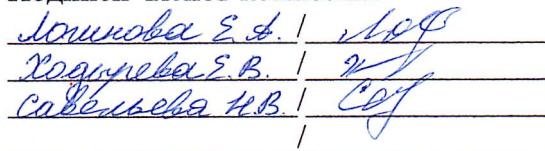 Логинова Е.А. /
Ходырева Е.В. /
Савельева Н.В. /
/